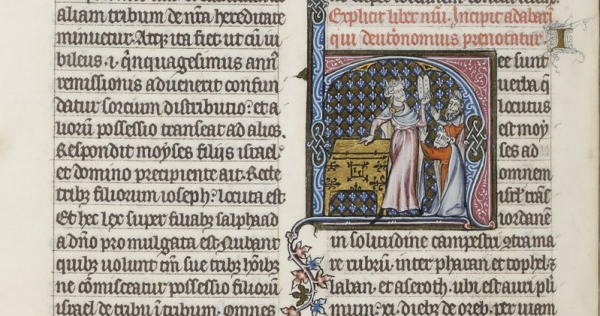 aliam tribum de nr̄a hereditate
minuetur. Atq; ita fiet ut cū iu
bileus. i. qͥnquagesimus annꝰ
remissionis aduenerit confun
datur sorcium distributio: et a
liorū possessio transeat ad alios.
Respondit moyses filijs israel.
et domino precipiente ait. Recte
tribꝫ filiorum ioseph locuta est
Et hec lex super filiabꝫ salphaad
a dn̄o promulgata est. Nubant
quibꝫ uolunt tm̄ sue tribꝫ hōibꝫ
ne cōmisceatur possessio filiorū
israel de tribu ī tribum. Omnes
Explicit liber nūi. Incipit adabarī
qui deutōnomius prenotatur.
I
et sunt
uerba q̄
locutus
est moy
ses ad
omnem
isrl' trās
iordanē
in solitudine campestri. ↄtra ma
re rubrū. inter pharan et tophel ⁊
laban. et aseroth. ubi est auri pli
mum. xi. diebꝫ de oreb. per uiam